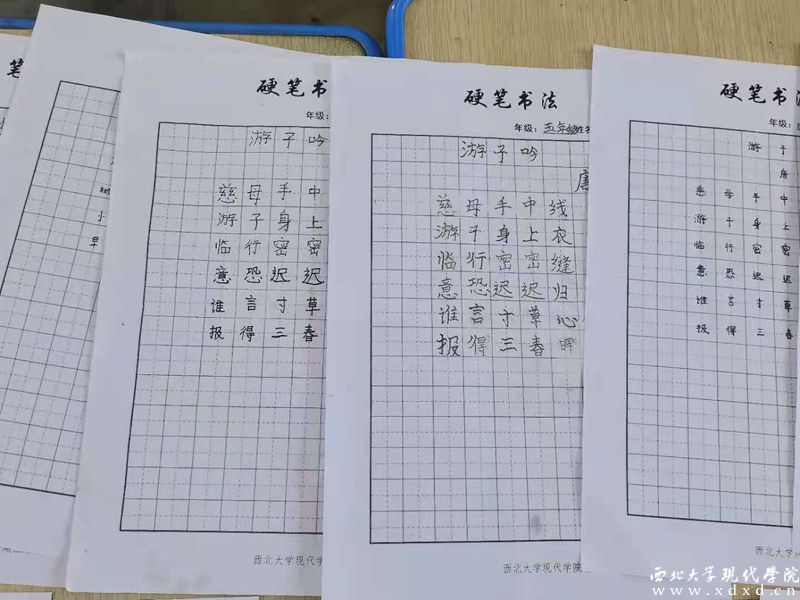 笔
早
硬笔书
年级:
游子吟
慈母手中
游子身上
临行密密
意恐迟迟
谁言寸草
报得三春
西北大学现代学
硬笔书法
年级:五年级姓名
游子吟
唐
慈母手中线
游子身上衣
临行密密缝
意恐迟迟归
谁言寸草沁
报得三春晖
西北大学现代学院
硬笔书法
年级:
游子
唐
慈母手中
游子身上
临行密密
意恐迟迟
谁言寸草
报得三春
西北大学现
西北大学现代学院
www.xdxd.cn